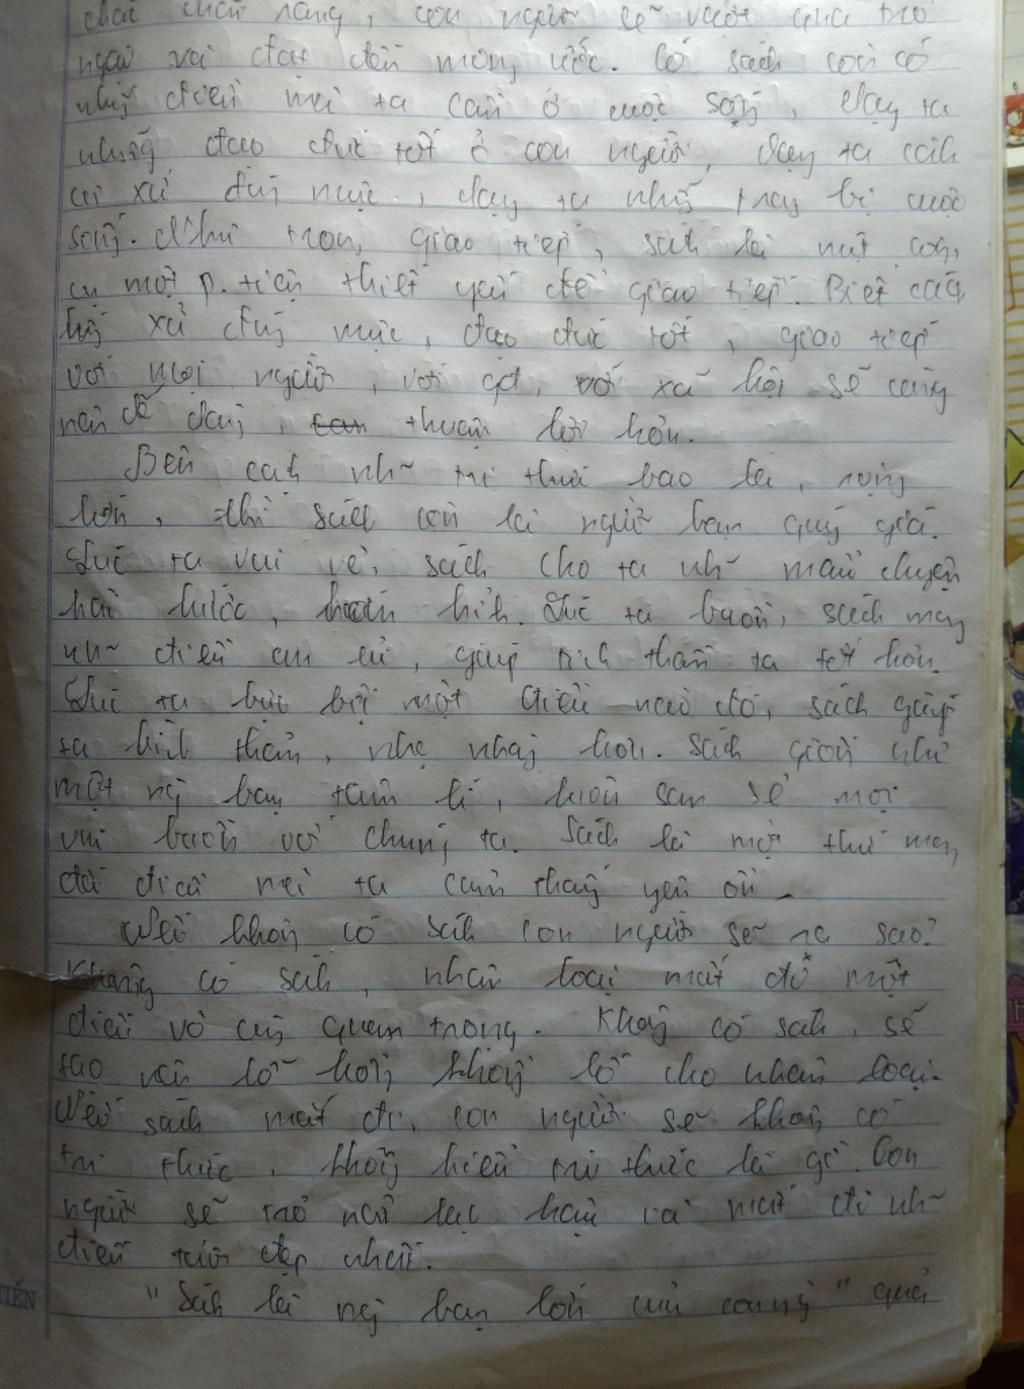 chắc chắn rằng, con người sẽ vượt qua trở
ngại và đạt đến mong ước. Có sách còn có
những điều mà ta cần ở cuộc sống, dạy ta
những đạo đức tốt ở con người, dạy ta cách
cư xử đúng mực, dạy ta những trang bị cuộc
sống. Như trong giao tiếp, sách là một công
cụ một p.tiện thiết yếu để giao tiếp. Biết cách
xử đúng mực, đạo đức tốt, giao tiếp
với mọi người, với với xã hội sẽ càng
nên dễ dàng, thuận lợi hơn.
Bên cạnh nh~ tri thức bao la, rộng
lớn, thì sách còn là người bạn quý giá.
Lúc ta vui vẻ, sách cho ta nh~ mẩu chuyện
hài hước, hóm hỉnh. Lúc ta buồn, sách mang
nh~ điều an ủi, giúp tinh thần ta tốt hơn.
Lúc ta bực bội một điều nào đó, sách giúp
ta bình thản, nhẹ nhàng hơn. Sách giống như
một ng bạn tâm lí, luôn san sẻ mọi
vui buồn với chúng ta. Sách là một thứ mang
điều mà ta cảm thấy yên ổn.
Nếu không có sách con người sẽ ra sao?
Không có sách, nhân loại mất đi một
điều vô cùng quan trọng. Không có sách, sẽ
tạo nên lỗ hổng khổng lồ cho nhân loại.
Nếu sách mất đi, con người sẽ không có
tri thức, không hiểu tri thức là gì. Con
người sẽ trở nên lạc hậu và mất đi nh~
điều tươi đẹp nhất.
"Sách là ng bạn lớn của con ng" quả
TIẾN